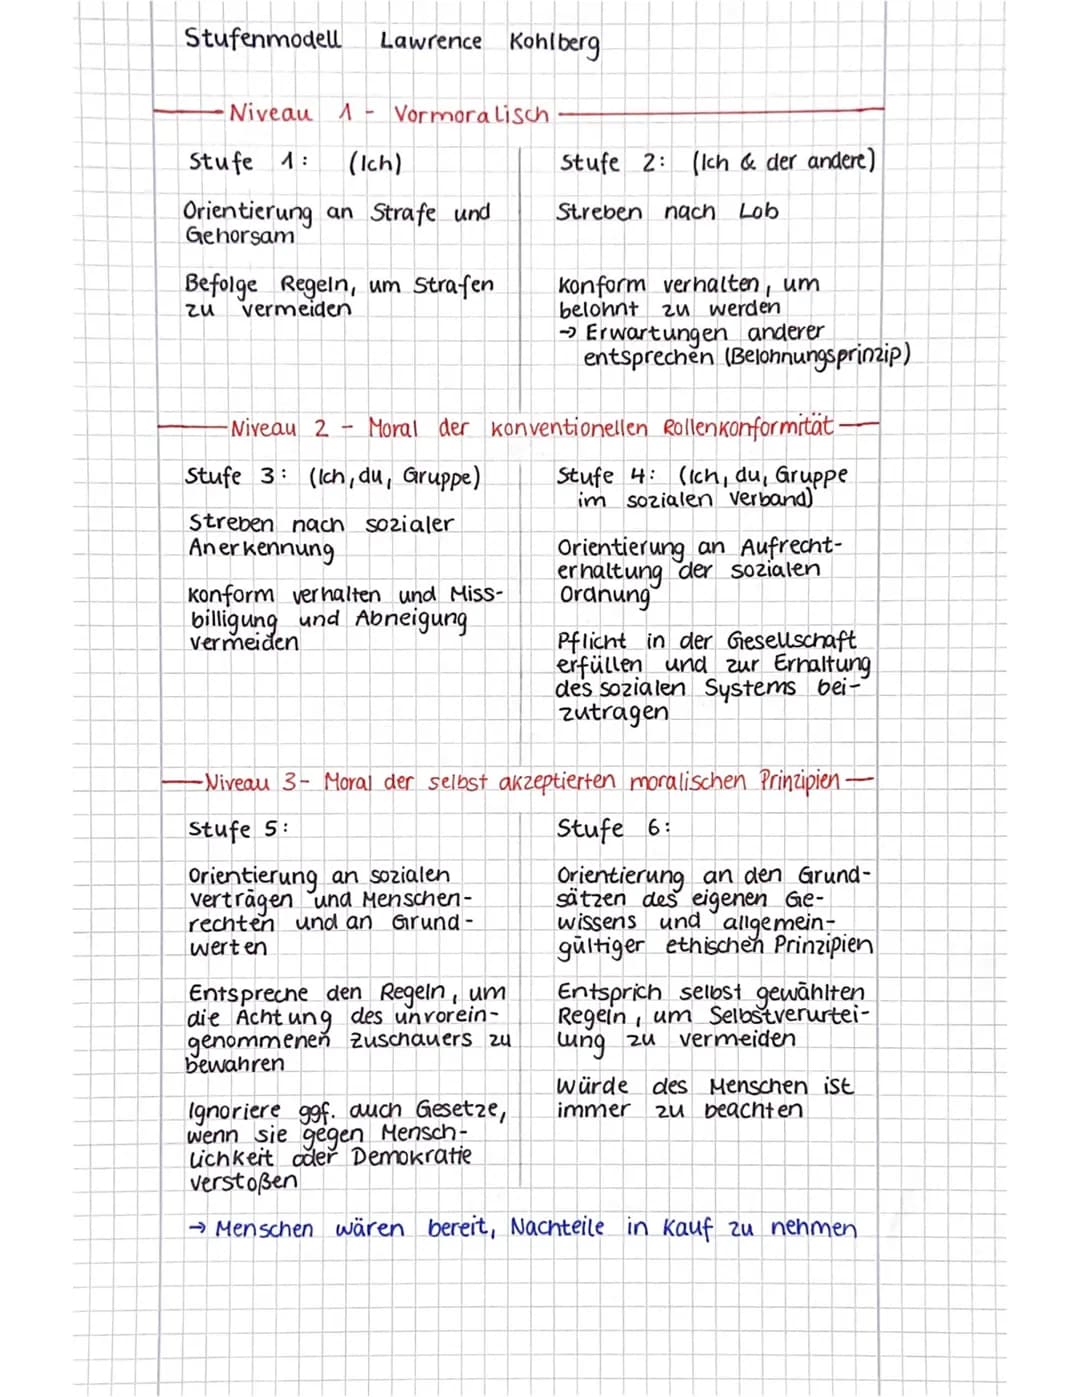 Stufenmodell Lawrence Kohlberg
Niveau 1 - Vormoralisch
Stufe 1: (Ich)
Orientierung an Strafe und
Gehorsam
Befolge Regeln, um Strafen
zu vermeiden
Stufe 2: (Ich & der andere)
Streben nach Lob
konform verhalten, um
belohnt zu werden
→ Erwartungen anderer
entsprechen (Belohnungsprinzip)
Niveau 2 - Moral der konventionellen Rollenkonformität
Stufe 3: (Ich, du, Gruppe)
Streben nach sozialer
Anerkennung
konform verhalten und Miss-
billigung und Abneigung
vermeiden
Stufe 4: (Ich, du, Gruppe
im sozialen Verband)
Orientierung an Aufrecht-
erhaltung der sozialen
Ordnung
Pflicht in der Gesellschaft
erfüllen und zur Erhaltung
des sozialen Systems bei-
zutragen
Niveau 3 - Moral der selbst akzeptierten moralischen Prinzipien
Stufe 5:
Orientierung an sozialen
Verträgen und Menschen-
rechten und an Grund-
werten
Entspreche den Regeln, um
die Achtung des unvorein-
genommenen Zuschauers zu
bewahren
Ignoriere ggf. auch Gesetze,
wenn sie gegen Mensch-
lichkeit oder Demokratie
verstoßen
Stufe 6:
Orientierung an den Grund-
sätzen des eigenen Ge-
wissens und allgemein-
gültiger ethischen Prinzipien
Entsprich selbst gewählten
Regeln, um Selbstverurtei-
lung zu vermeiden
Würde des Menschen ist
immer zu beachten
→ Menschen wären bereit, Nachteile in Kauf zu nehmen